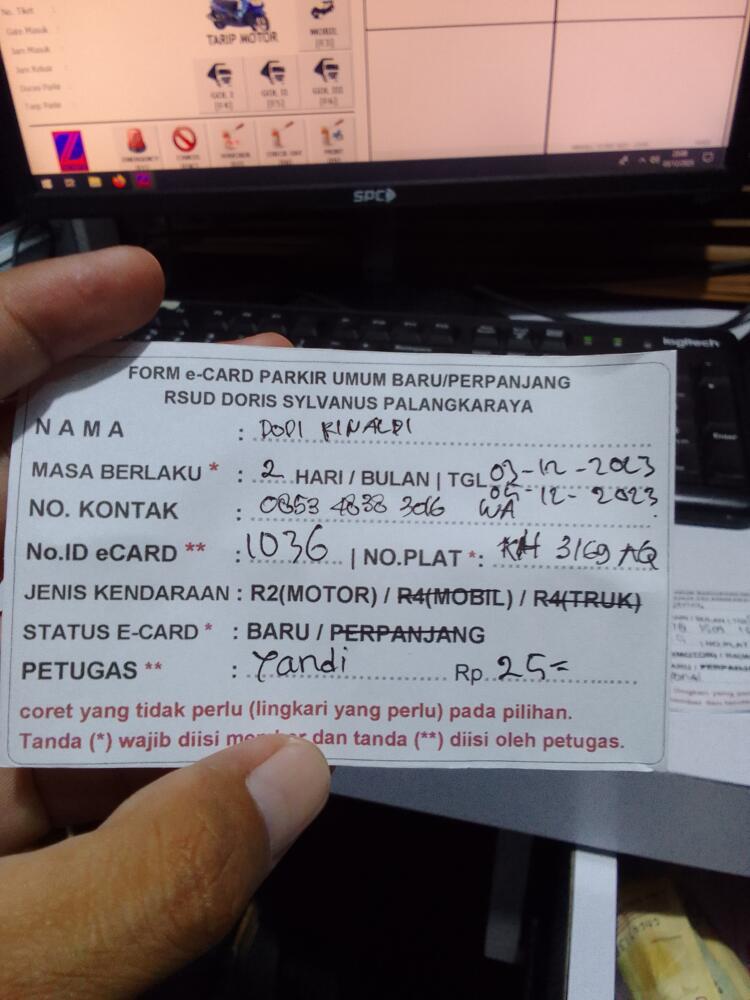 No. Tiket :
Gate Masuk :
Jam Masuk
Jam Keluar
Tarip Parkir
TARIP MOTOR
MOBIL
GOL I
GOL II
GOL III
EMERGENCY
SPC
logitech
Enter
FORM e-CARD PARKIR UMUM BARU/PERPANJANG
RSUD DORIS SYLVANUS PALANGKARAYA
NAMA : DODI RINALDI
MASA BERLAKU * : 2 HARI / BULAN | TGL 03-12-2023
05-12-2023
NO. KONTAK : 0853 4838 3016 WA
No.ID eCARD ** : 1036 | NO.PLAT *: KH 3169 AQ
JENIS KENDARAAN : R2(MOTOR) / R4(MOBIL) / R4(TRUK)
STATUS E-CARD * : BARU / PERPANJANG
PETUGAS ** : Yandi Rp. 25=
coret yang tidak perlu (lingkari yang perlu) pada pilihan.
Tanda (*) wajib diisi member dan tanda (**) diisi oleh petugas.